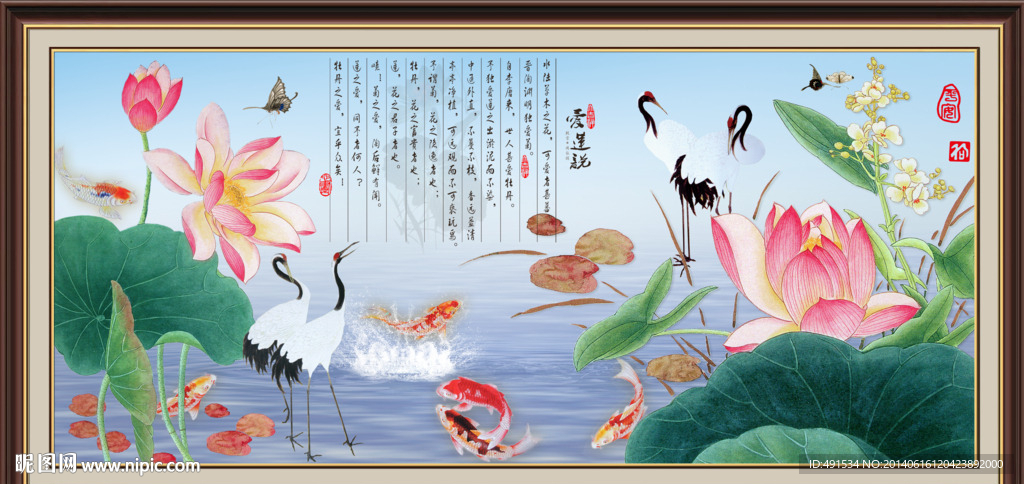 爱莲说
水陆草木之花，可爱者甚蕃
晋陶渊明独爱菊。
自李唐来，世人甚爱牡丹。
予独爱莲之出淤泥而不染，
中通外直，不蔓不枝，香远益清
亭亭净植，可远观而不可亵玩焉。
予谓菊，花之隐逸者也；
牡丹，花之富贵者也；
莲，花之君子者也。
噫！菊之爱，陶后鲜有闻。
莲之爱，同予者何人？
牡丹之爱，宜乎众矣！
昵图网 www.nipic.com
ID:491534 NO:20140616120423892000